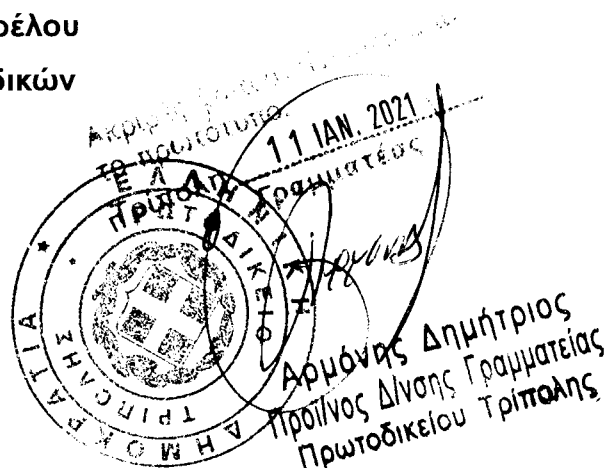 ρέλου
δικών
Ακριβές
το πρωτότυπο.
Τρίπολη 11 ΙΑΝ. 2021
Γραμματέας
ΕΛΛΗΝΙΚΗ ΔΗΜΟΚΡΑΤΙΑ
ΠΡΩΤΟΔΙΚΕΙΟ ΤΡΙΠΟΛΗΣ
Αρμόνης Δημήτριος
Προϊ/νος Δ/νσης Γραμματείας
Πρωτοδικείου Τρίπολης